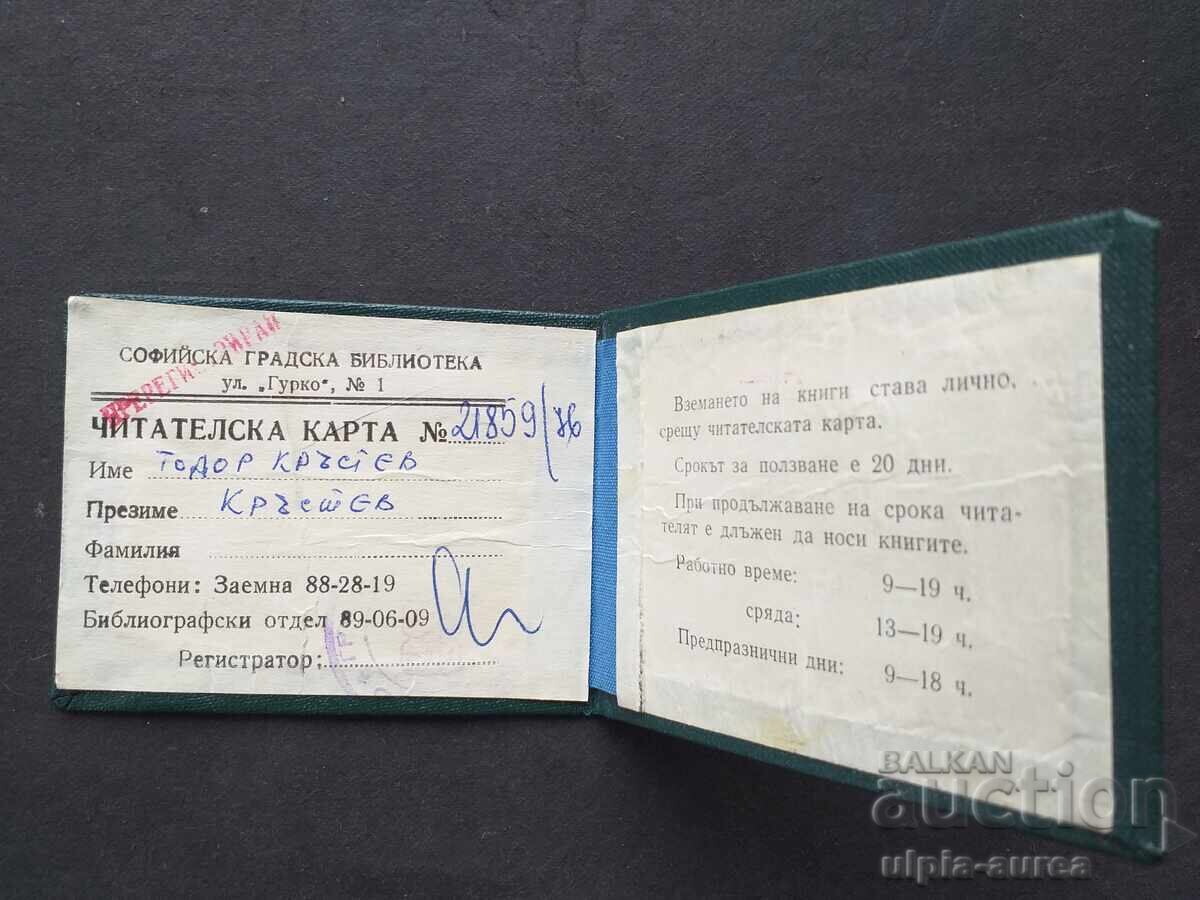 ПРЕРЕГИСТРИРАН
СОФИЙСКА ГРАДСКА БИБЛИОТЕКА
ул. „Гурко", № 1
ЧИТАТЕЛСКА КАРТА № 21859/76
Име ТОДОР КРЪСТЕВ
Презиме КРЪСТЕВ
Фамилия
Телефони: Заемна 88-28-19
Библиографски отдел 89-06-09
Регистратор:
Вземането на книги става лично,
срещу читателската карта.
Срокът за ползване е 20 дни.
При продължаване на срока чита-
телят е длъжен да носи книгите.
Работно време: 9—19 ч.
сряда: 13—19 ч.
Предпразнични дни: 9—18 ч.
BALKAN
auction
ulpia-aurea